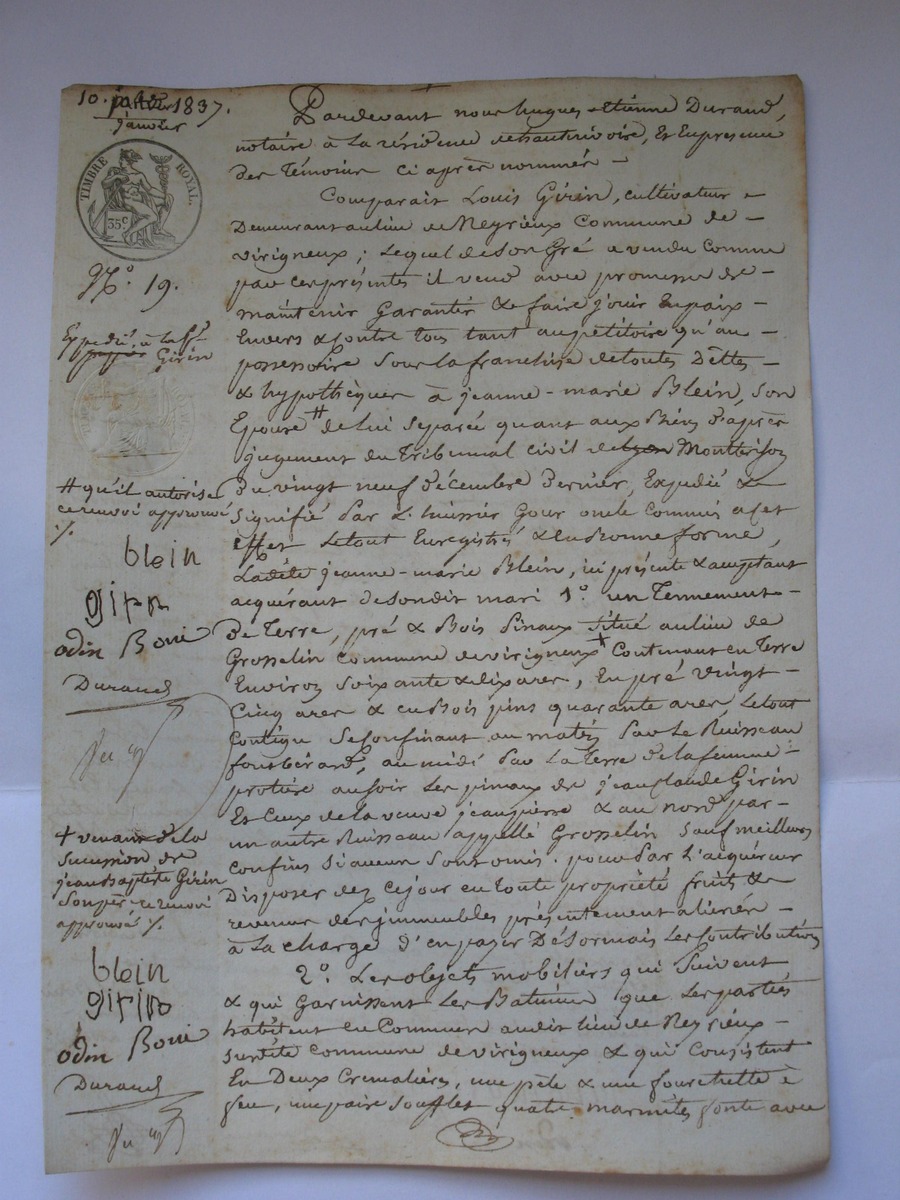 10. juillet 1837.
janvier
TIMBRE ROYAL.
35c
N.° 19.
Expédié, à la fe
Girin
# qu'il autorise
ce renvoi approuvé
./.
blein
girin
odin Boni
Durand
+ venant de la
sucession de
jean Baptiste Girin
son père ce renvoi
approuvé ./.
blein
girin
odin Boni
Durand
Pardevant nous hugues etienne Durand,
notaire à La résidence de hauterivoire, Et En présence
Des Témoins ci après nommés –
Comparait Louis Girin, cultivateur
Demeurant au lieu de Neyrieux Commune de –
virigneux ; Lequel de son Gré a vendu comme
par ces présentes il vend avec promesse de –
maintenir Garantir & faire jouir En paix –
Envers & Contre tous tant au petitoire qu'au –
possessoire sous la franchise de toutes Dettes –
& hypothèques à jeanne-marie Blein, son
Epouse # de lui separée quant aux Biens d'après
jugement du Tribunal civil de Lyon Montbrison
Du vingt neuf décembre Dernier, Expedié &
signifié Par L'huissier Gour commis a cet
effet Le tout Enregistré & en Bonne forme,
Ladite jeanne-marie Blein, ici présente & acceptant
acquérant de sondit mari 1.° un Tennement –
De Terre, pré & Bois Pinaux situé au lieu de
Grosselin commune de virigneux + Contenant en Terre
Environ soixante & dix ares, En pré vingt –
Cinq ares & en Bois pins quarante ares, Le tout
Contigu se Confinant au matin Par Le Ruisseau
fontbérard, au midi Par La Terre de la femme –
protière au soir Les pinaux de jean claude Girin
Et Ceux de la veuve jean pierre & au nord par –
un autre Ruisseau appellé Grosselin sauf meilleurs
confins si aucun sont omis. pour Par L'acquéreur
Disposer dez ce jour en toute propriété fruits &
revenus des immeubles présentement aliénés –
à La charge d'en payer Désormais Les Contributions
2.° Les objets mobiliers qui suivent
& qui Garnissent Les Batimens que Les parties
habitent en Commun audit lieu de Neyrieux –
susdite commune de virigneux & qui Consistent
En Deux Cremalières, une pèle & une fourchette à
feu, une paire soufflet quatre marmites fonte avec